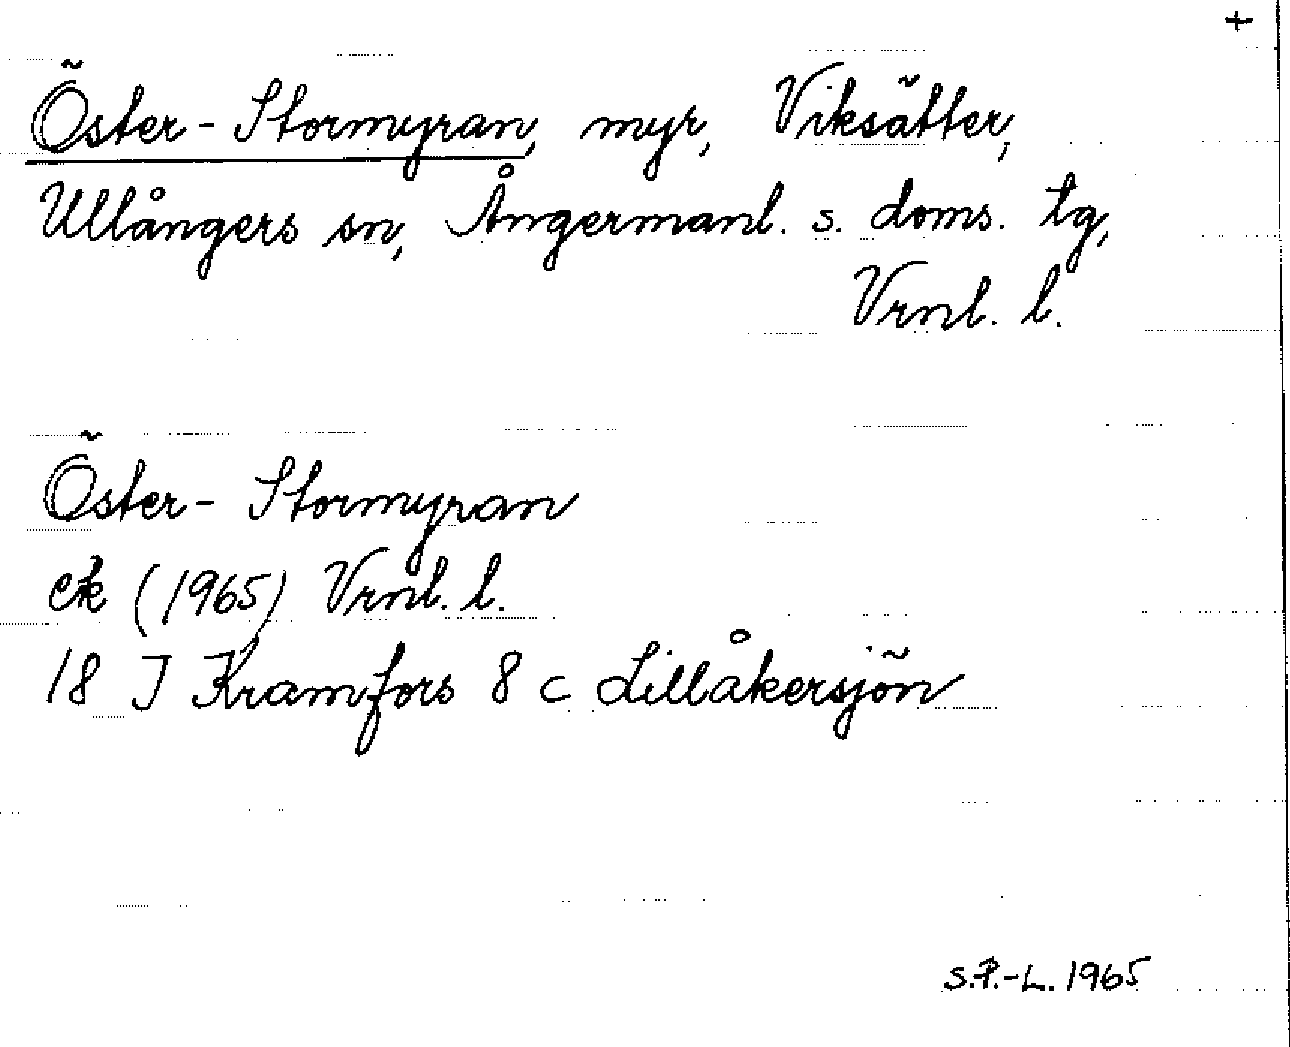 +
Öster-Stormyran, myr, Viksätter,
Ullångers sn, Ångermanl. s. doms. tg,
Vrnl. l.
Öster-Stormyran
ek (1965) Vrnl. l.
18 J Kramfors 8 c Lillåkersjön
S.P.-L. 1965